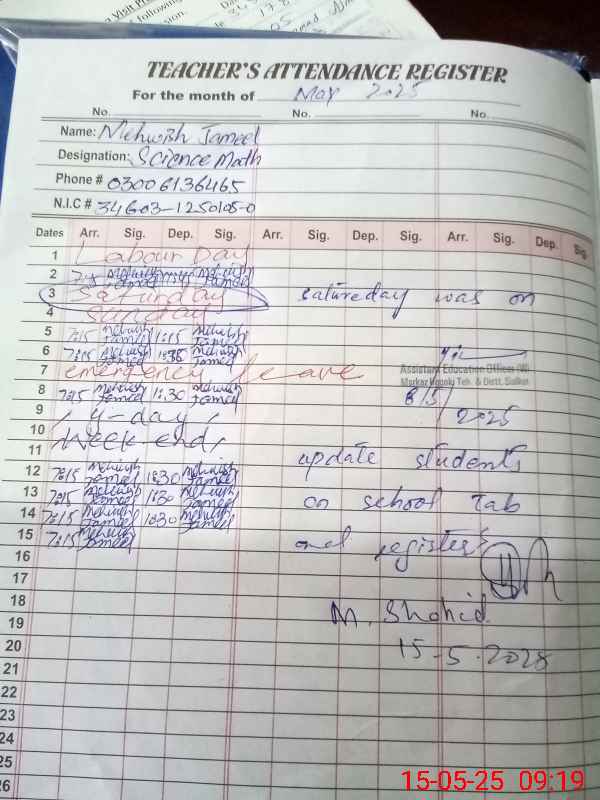 TEACHER'S ATTENDANCE REGISTER
For the month of May 2025
No. No. No.
Name: Mehwish Jameel
Designation: Science Math
Phone # 03006136465
N.I.C # 34603-1250105-0
Dates Arr. Sig. Dep. Sig. Arr. Sig. Dep. Sig. Arr. Sig. Dep. Sig.
1 Labour Day
2 Mehwish Jameel Mehwish Jameel
3 Saturday satureday was on
4 Sunday
5 7:15 Mehwish Jameel 1:15 Mehwish Jameel
6 7:15 Mehwish Jameel Mehwish Jameel
Assistant Education Officer (W)
7 emergency leave
Markaz Teh. & Distt. Sialkot
8 7:15 Mehwish Jameel 1:30 Mehwish Jameel 8/5/
9 2025
10 y-day
11 Week end update students
12 7:15 Mehwish Jameel 1:30 Mehwish Jameel
13 7:15 Mehwish Jameel 1:30 Mehwish Jameel on school Tab
14 7:15 Mehwish Jameel 1:30 Mehwish Jameel
15 7:15 Mehwish Jameel and register
16
17
18 M. Shahid
19
20 15-5-2025
21
22
23
24
25
26
15-05-25 09:19